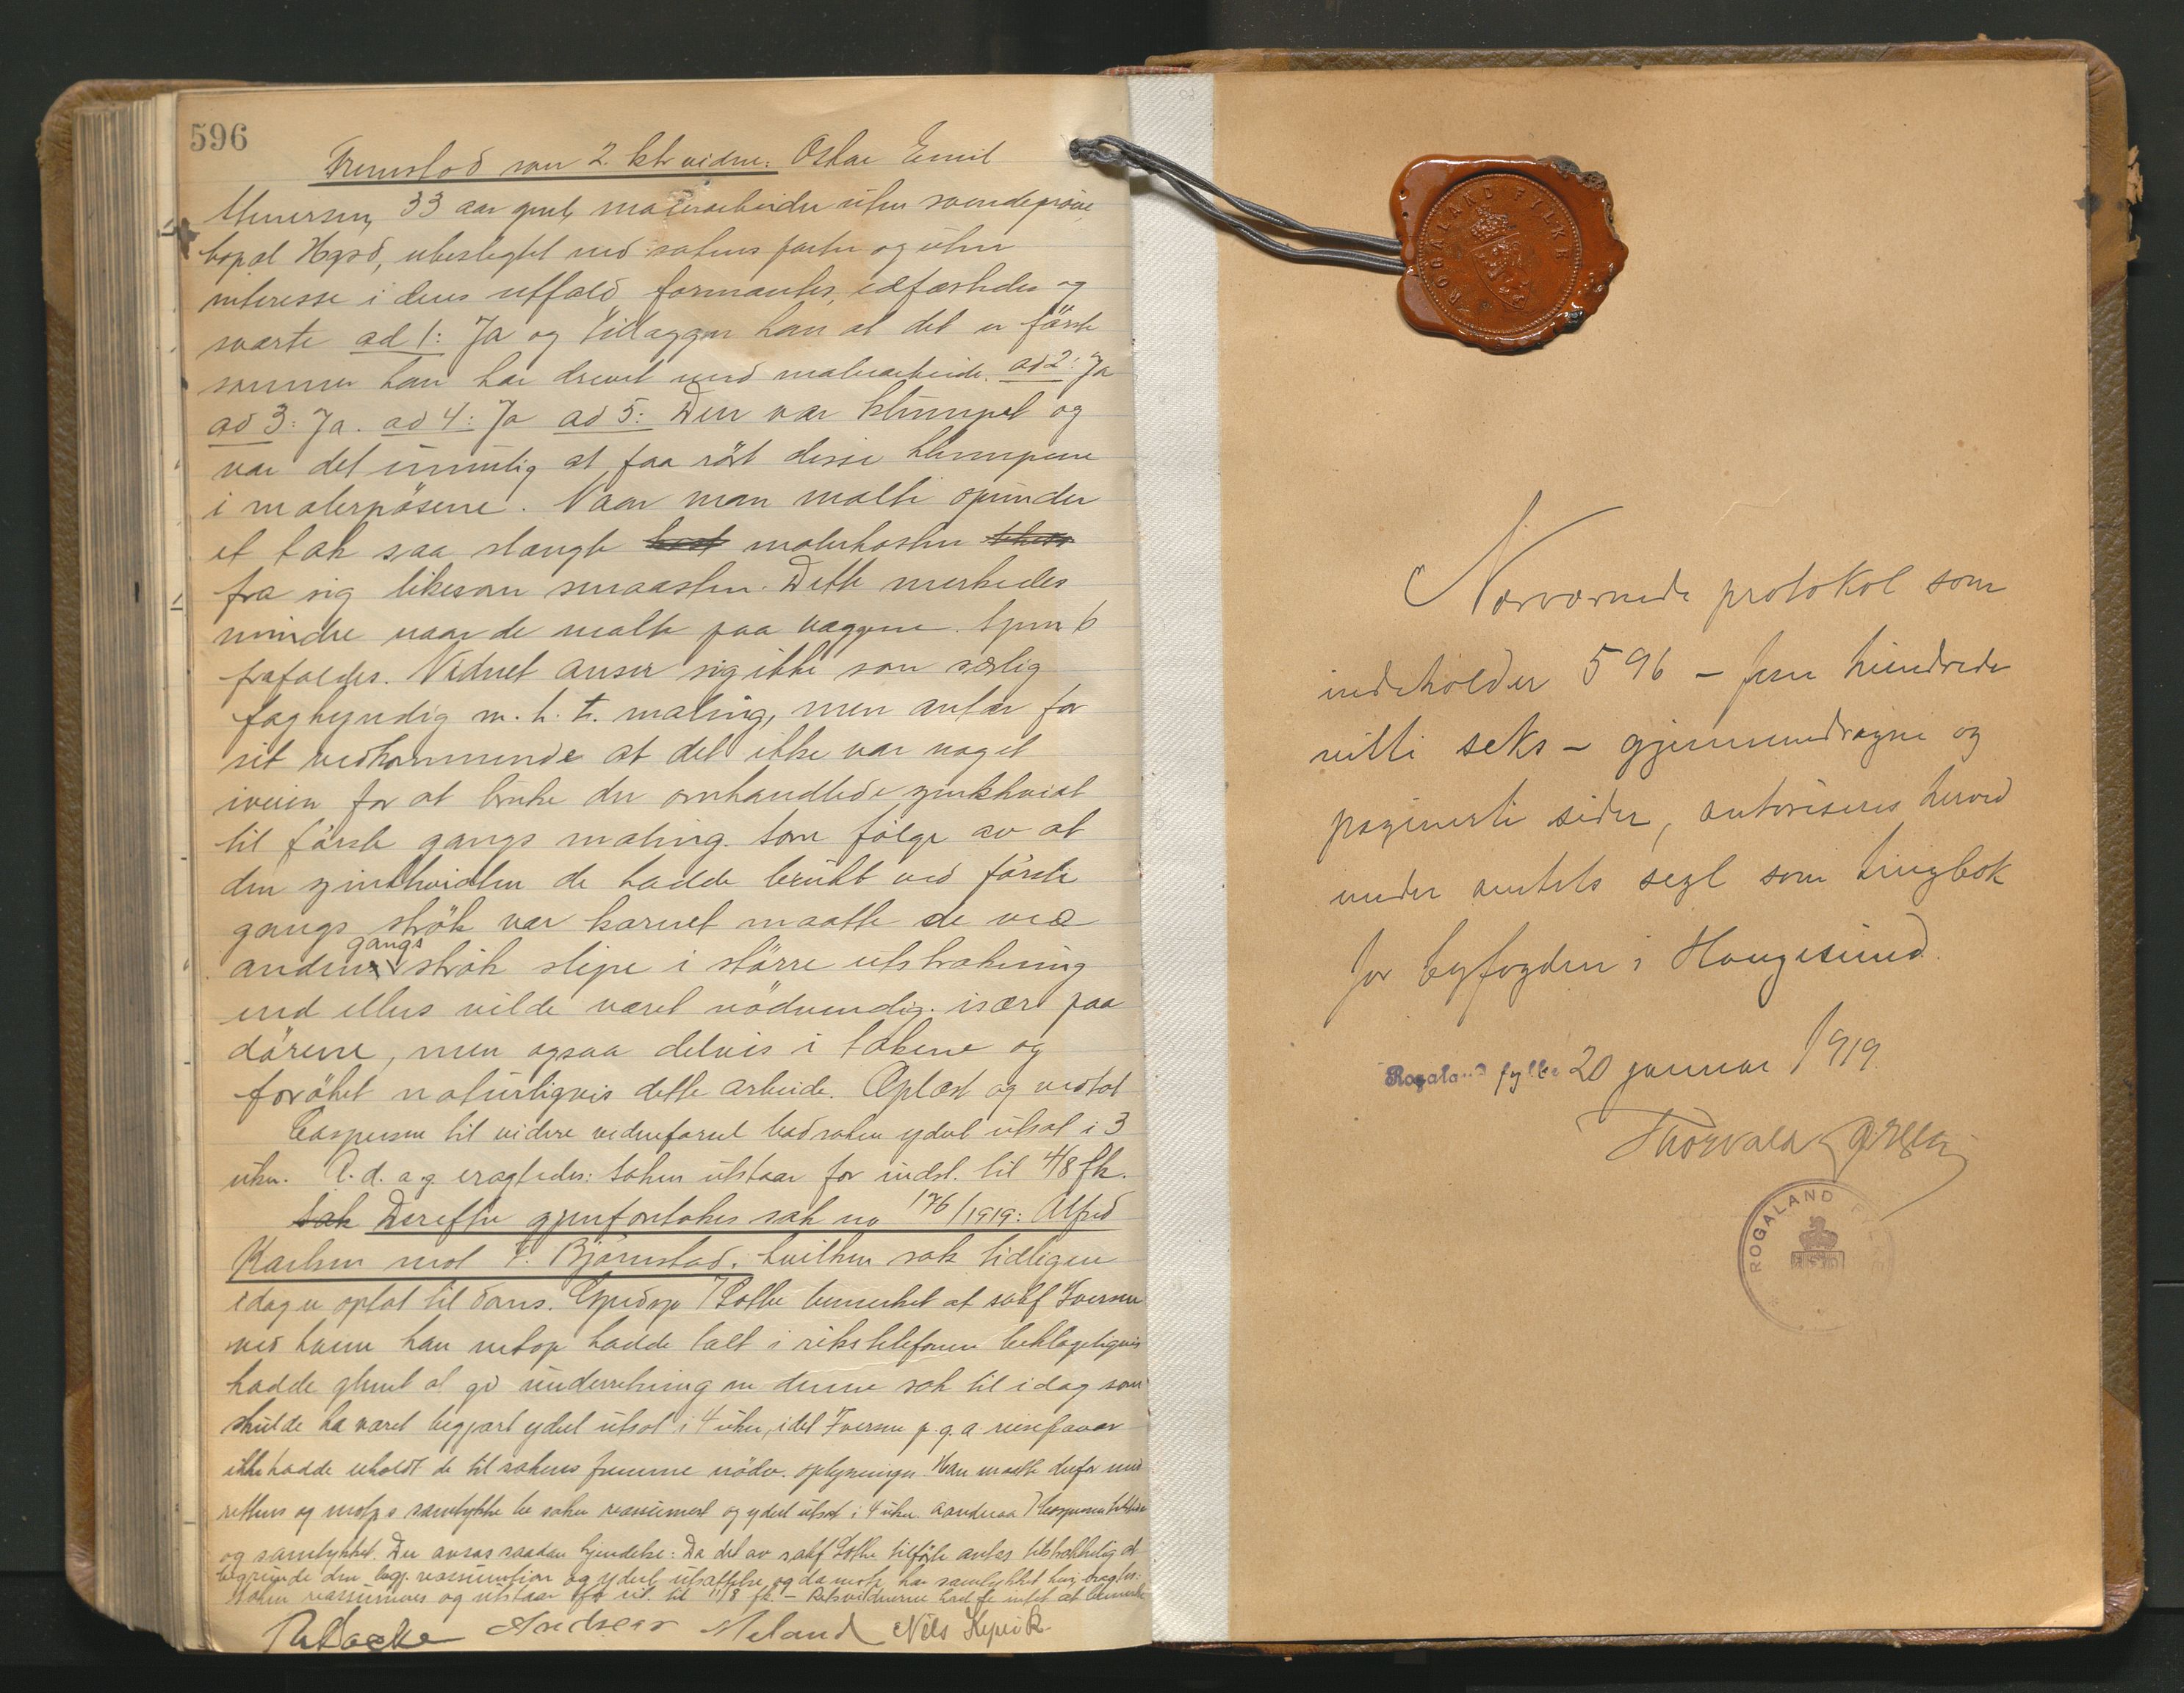 596
Fremstod som 2. ktr vidne: Oskar Emil
33 aar gml, malerarbeider uten svendeprøve,
bopæl Hgsd, ubeslegtet med sakens parter og uten
interesse i dens utfald, formantes, edfæstedes og
svarte ad 1: Ja og tillægger han at det er første
sommer han har drevet med malerarbeide. ad 2: Ja
ad 3: Ja. ad 4: Ja ad 5: Den var klumpet og
var det umulig at faa rört disse klumpene
i malerpösene. Naar man malte opunder
et tak saa slængte malerkosten
fra sig likesom smaasten. Dette merkedes
mindre naar de malte paa væggene. Spm 6
frafaldes. Vidnet anser sig ikke som særlig
fagkyndig m. h. t. maling, men antar for
sit vedkommende at det ikke var noget
iveien for at bruke den omhandlede zinkhvidt
til første gangs maling. Som følge av at
den zinkhvidten de hadde brukt ved første
gangs strök var kornet maatte de ved
anden gangs strök slipe i större utstrækning
end ellers vilde været nödvendig, især paa
dörene, men ogsaa delvis i takene og
forøket naturligvis dette arbeide. Oplæst og vedtat
Caspersen til videre vidneførsel bad saken ydet utsat i 3
uker. A. d. a. g. eragtedes: Saken utstaar for indst. til 4/8 fk.
Sak Derefter gjenforetokes sak no 176/1919: Alfred
Karlsen mot F. Bjørnstad, hvilken sak tidligere
idag er optat til doms. Lothe bemerket at sakf Iversen
med hvem han netop hadde talt i rikstelefonen beklageligvis
hadde glemt at gi underretning om denne sak til idag som
skulde ha været begjært ydet utsat i 4 uker, idet Iversen p. g. a. reisefravær
ikke hadde erholdt de til sakens fremme nödv. oplysninger. Han maatte derfor med
rettens og motp s samtykke be saken reassumert og ydet utsat i 4 uker. Caspersen
og samtykket. Der avsas saadan kjendelse: Da det av sakf Lothe tilførte antas tilstrækkelig at
begrunde den begj. reassumtion og ydet utsættelse og da motp. har samtykket heri, eragtes:
Saken reassumeres og utstaar til 11/8 fk. — Retsvidnerne hadde intet at bemerke
Andreas Meland Nils Kyvik
Nærværende protokol som
indeholder 596 – fem hundrede
nitti seks – gjennemdragne og
paginerte sider, autoriseres herved
under amtets segl som tingbok
for byfogden i Haugesund.
Rogaland fylke 20 januar 1919
Thorvald
ROGALAND FYLKE
ROGALAND FYLKE